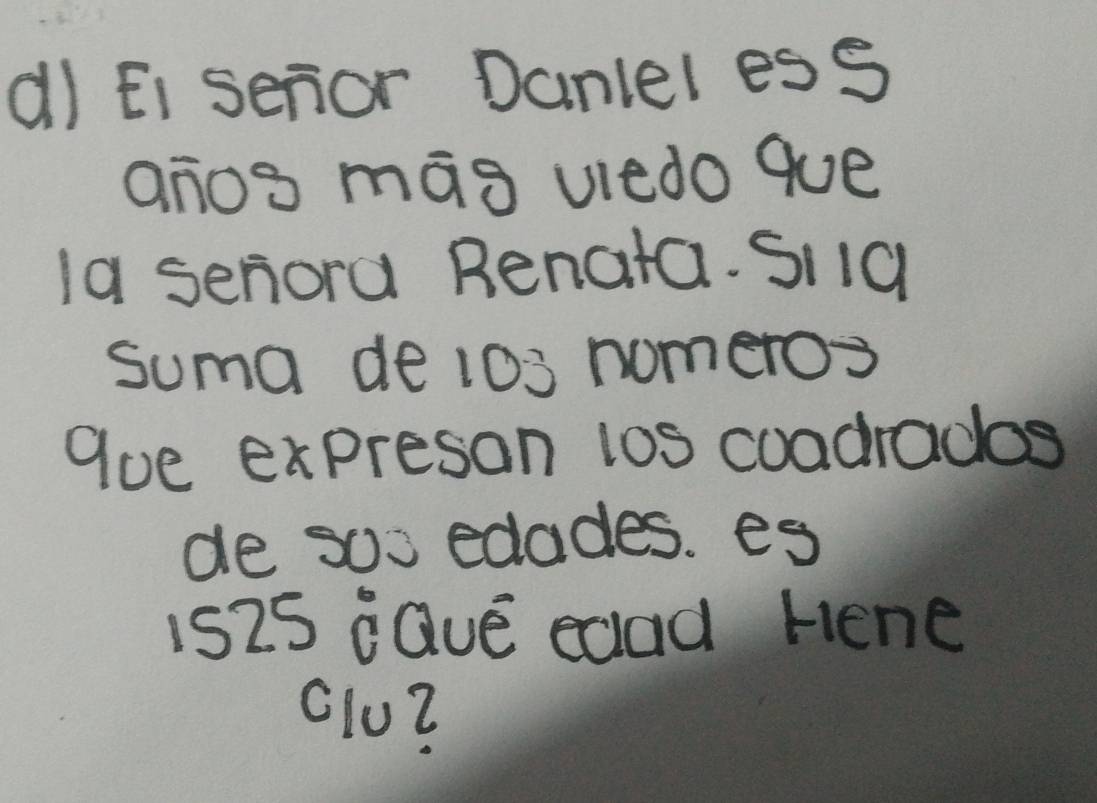 d) El señor Daniel es 5
años más viejo que
la señora Renata. Si la
suma de los numeros
que expresan los cuadrados
de sus edades. es
1525 ¿Qué edad tiene
c/u?